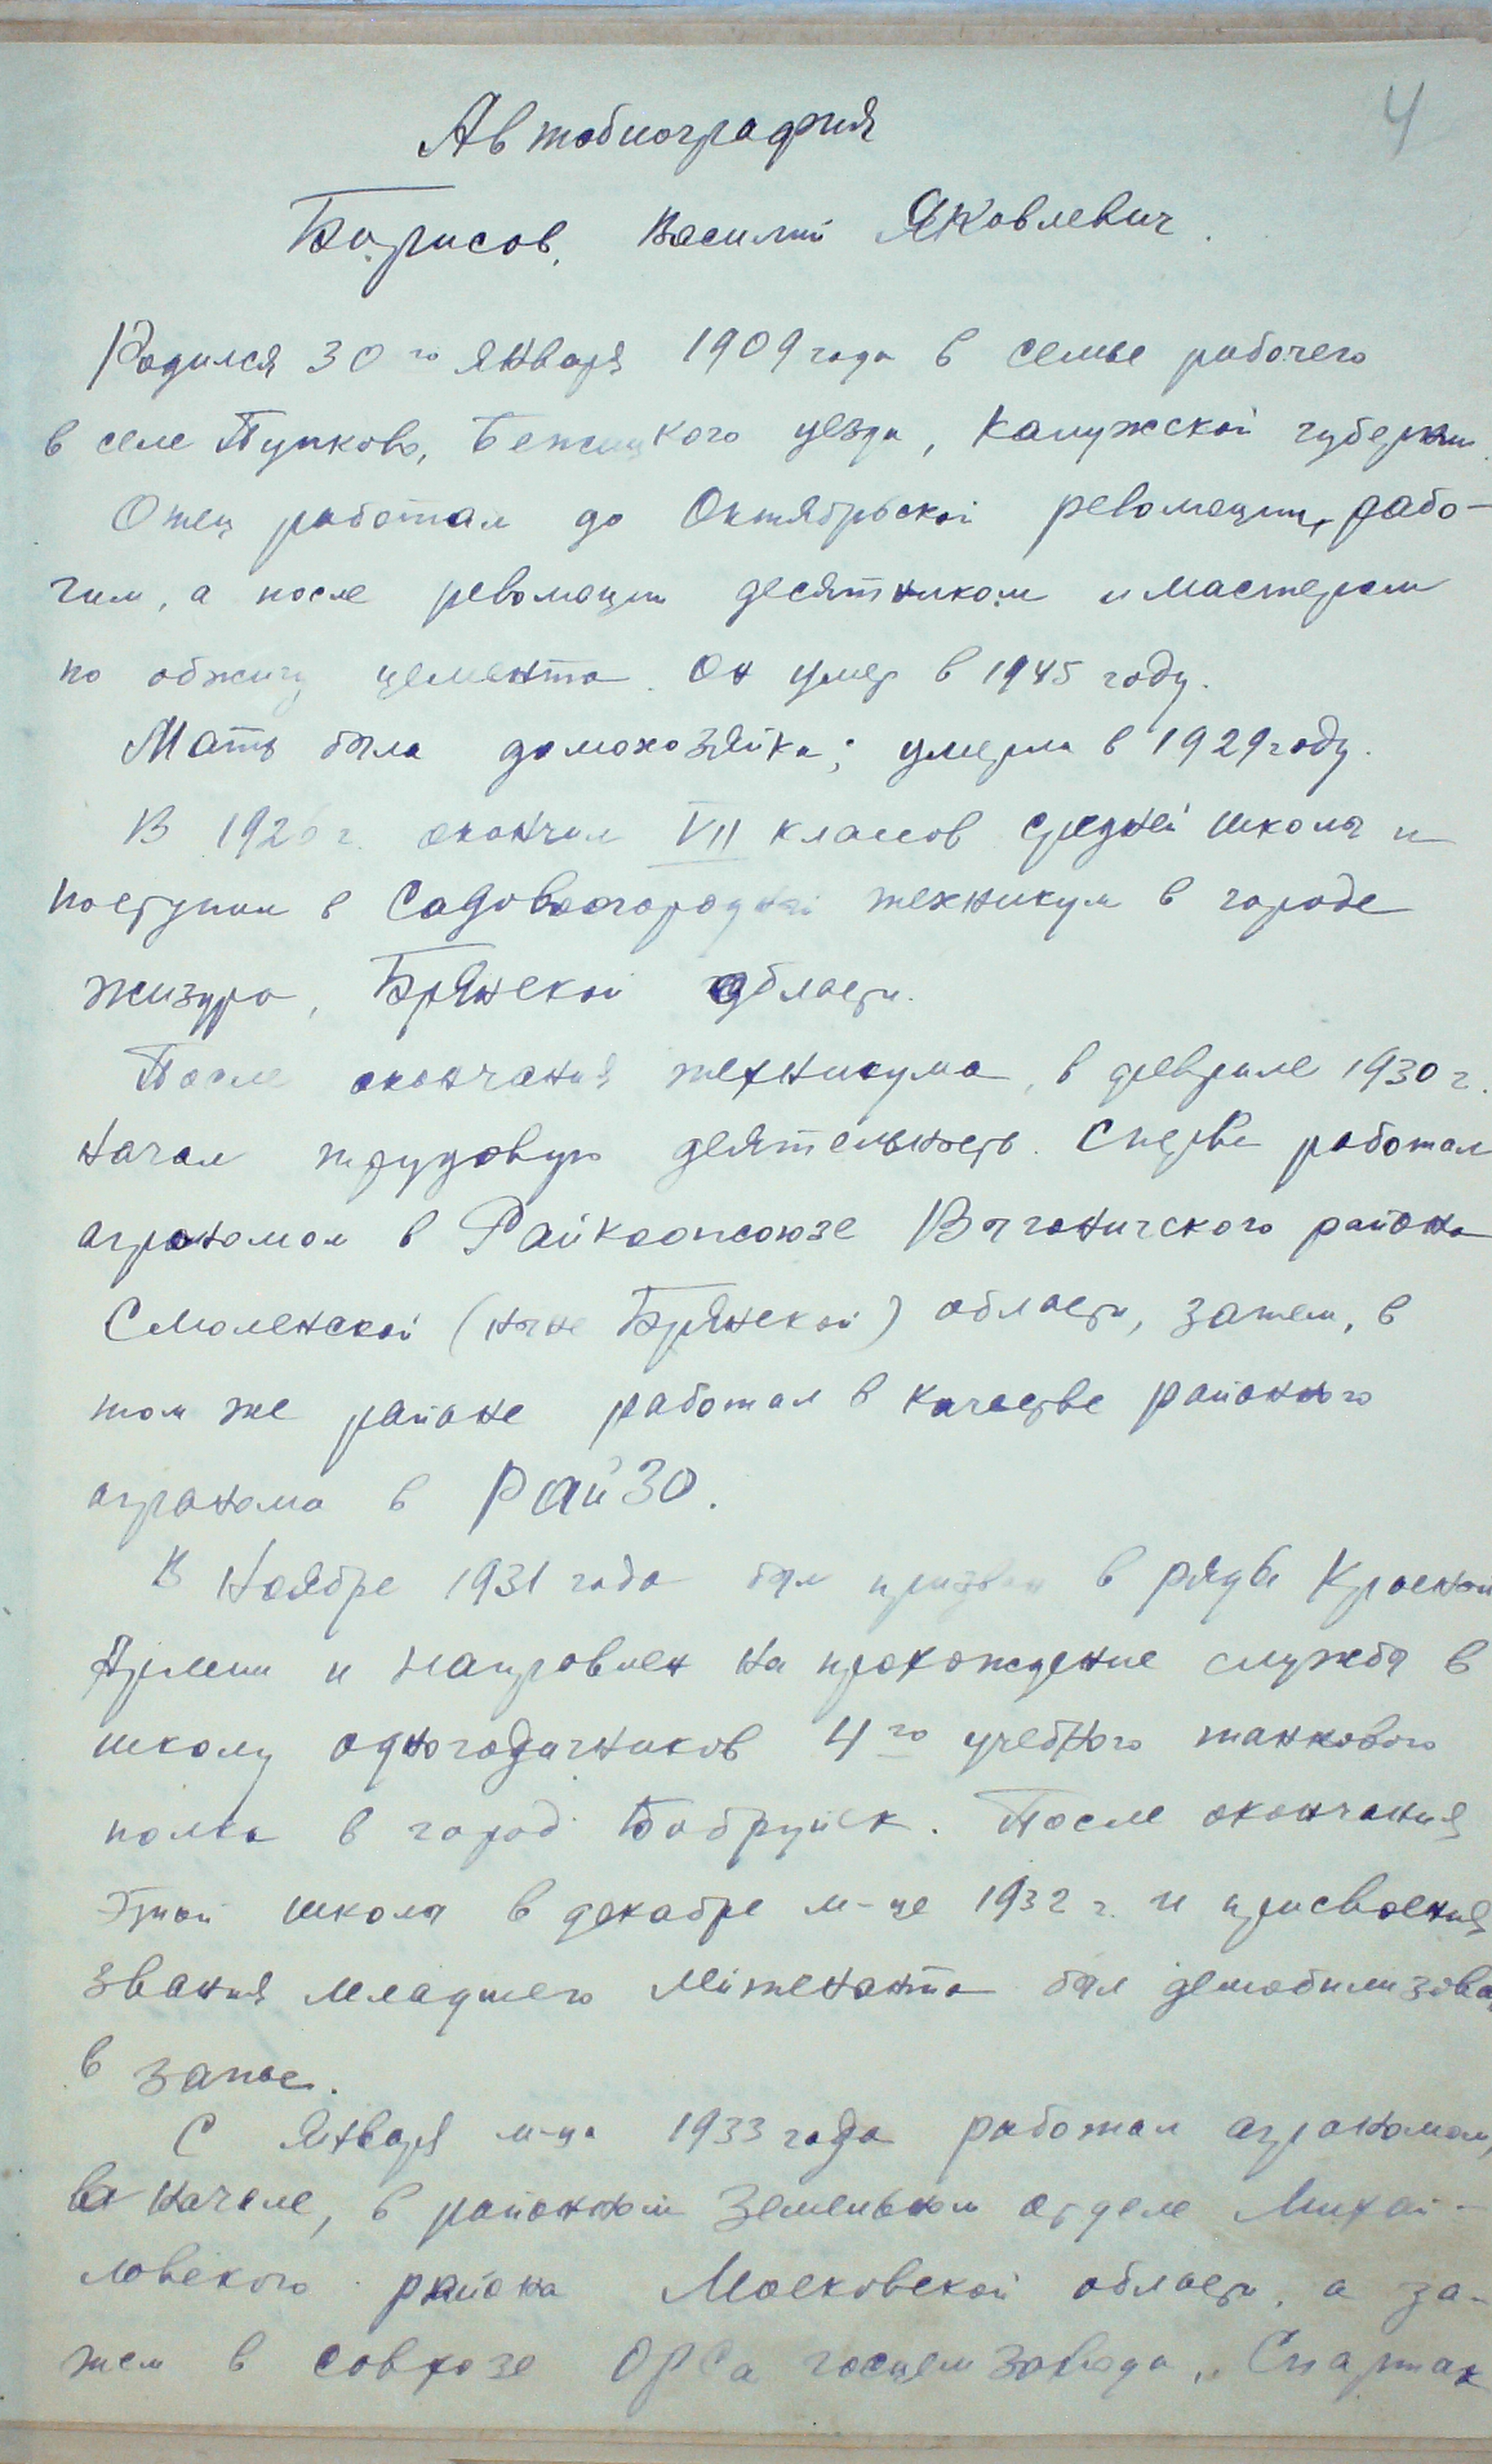 4
Автобиография
Борисов, Василий Яковлевич.
Родился 30го января 1909 года в семье рабочего
в селе Пупково, Бежицкого уезда, Калужской губернии.
Отец работал до Октябрьской революции, рабо-
чим, а после революции десятником и мастером
по обжигу цемента. Он умер в 1945 году.
Мать была домохозяйка; умерла в 1929 году.
В 1926 г. окончил VII классов средней школы и
поступил в Садовоогородный техникум в городе
Жиздра, Брянской области.
После окончания техникума, в феврале 1930 г.
начал трудовую деятельность. Сперва работал
агрономом в Райкоопсоюзе Выгоничского района
Смоленской (ныне Брянской) области, затем, в
том же районе работал в качестве районного
агронома в РайЗО.
В ноябре 1931 года был призван в ряды Красной
Армии и направлен на прохождение службы в
школу одногодичников 4го учебного танкового
полка в город Бобруйск. После окончания
этой школы в декабре м-це 1932 г. и присвоения
звания младшего лейтенанта был демобилизован
в запас.
С января м-ца 1933 года работал агрономом,
в начале, в районном земельном отделе Михай-
ловского района Московской области, а за-
тем в совхозе ОРСа госцемзавода „Спартак